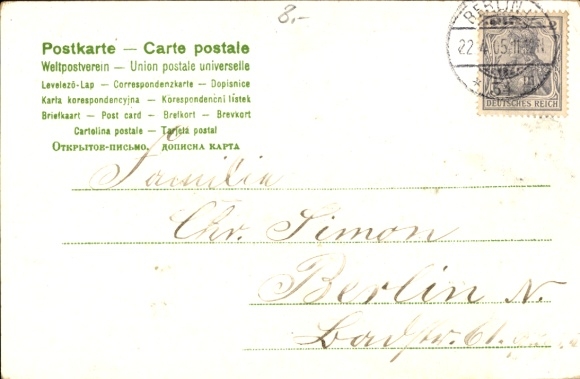 8.-
BERLIN
22.4.05.11-12
* 54
DEUTSCHES REICH
Postkarte — Carte postale
Weltpostverein — Union postale universelle
Levelező-Lap — Correspondenzkarte — Dopisnice
Karta korespondencyjna — Korespondenční lístek
Briefkaart — Post card — Brefkort — Brevkort
Cartolina postale — Tarjeta postal
Открытое-письмо, дописна карта
Familie
Chr. Simon
Berlin N.
Badstr. 61